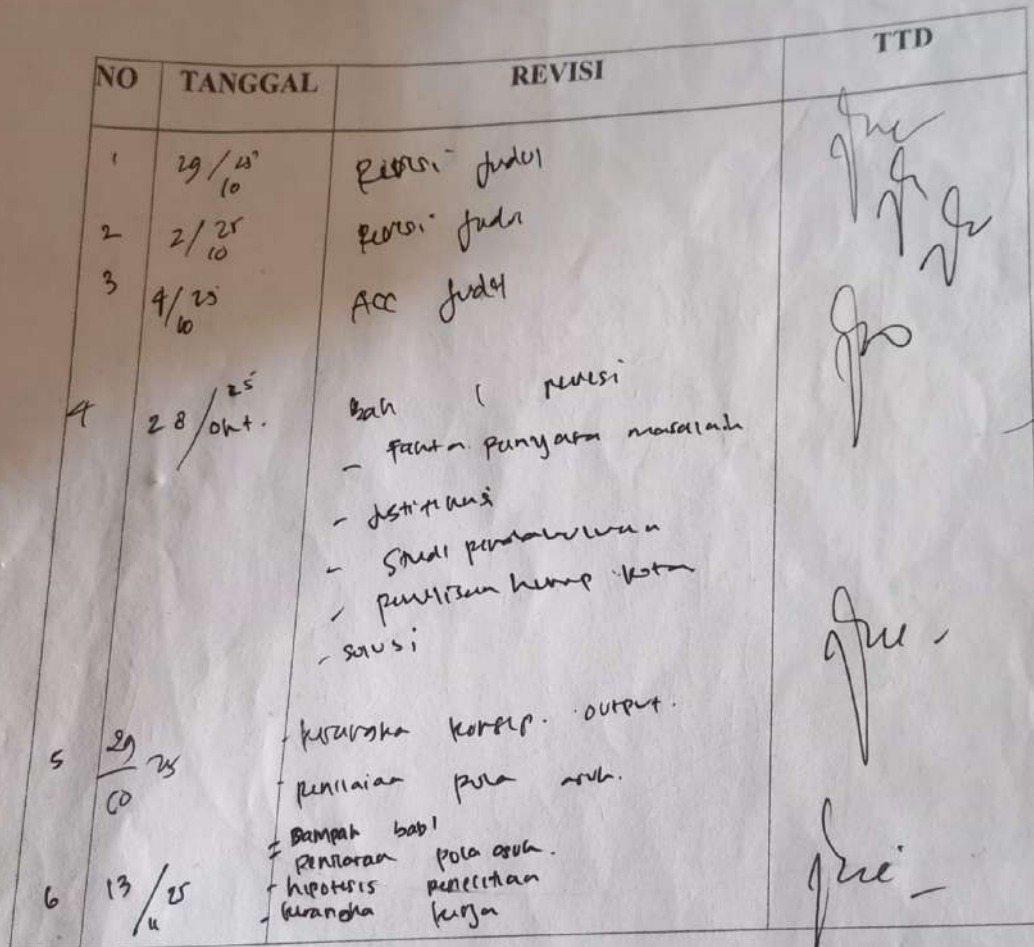 NO TANGGAL REVISI TTD
1 29/10 25 Revisi Judul
2 2/10 25 Revisi Judul
3 4/10 25 ACC Judul
4 28/okt. 25 Bab 1 revisi
- Fakta penyata masalah
- Justifikasi
- Studi pendahuluan
- penulisan hurup kota
- solusi
5 29/10 25 - kerangka konsep. output.
- penilaian pola asuh.
- Dampak bab 1
- penilaian pola asuh.
6 13/11 25 - hipotesis penelitian
- kerangka kerja